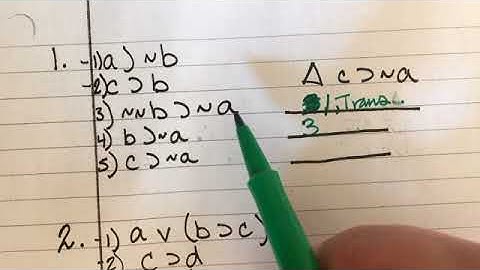 1. -1) a ⊃ ~b
-2) c ⊃ b
3) ~~b ⊃ ~a
4) b ⊃ ~a
5) c ⊃ ~a
∆ c ⊃ ~a
1, Trans.
3
2. -1) a v (b ⊃ c)
-2) c ⊃ d